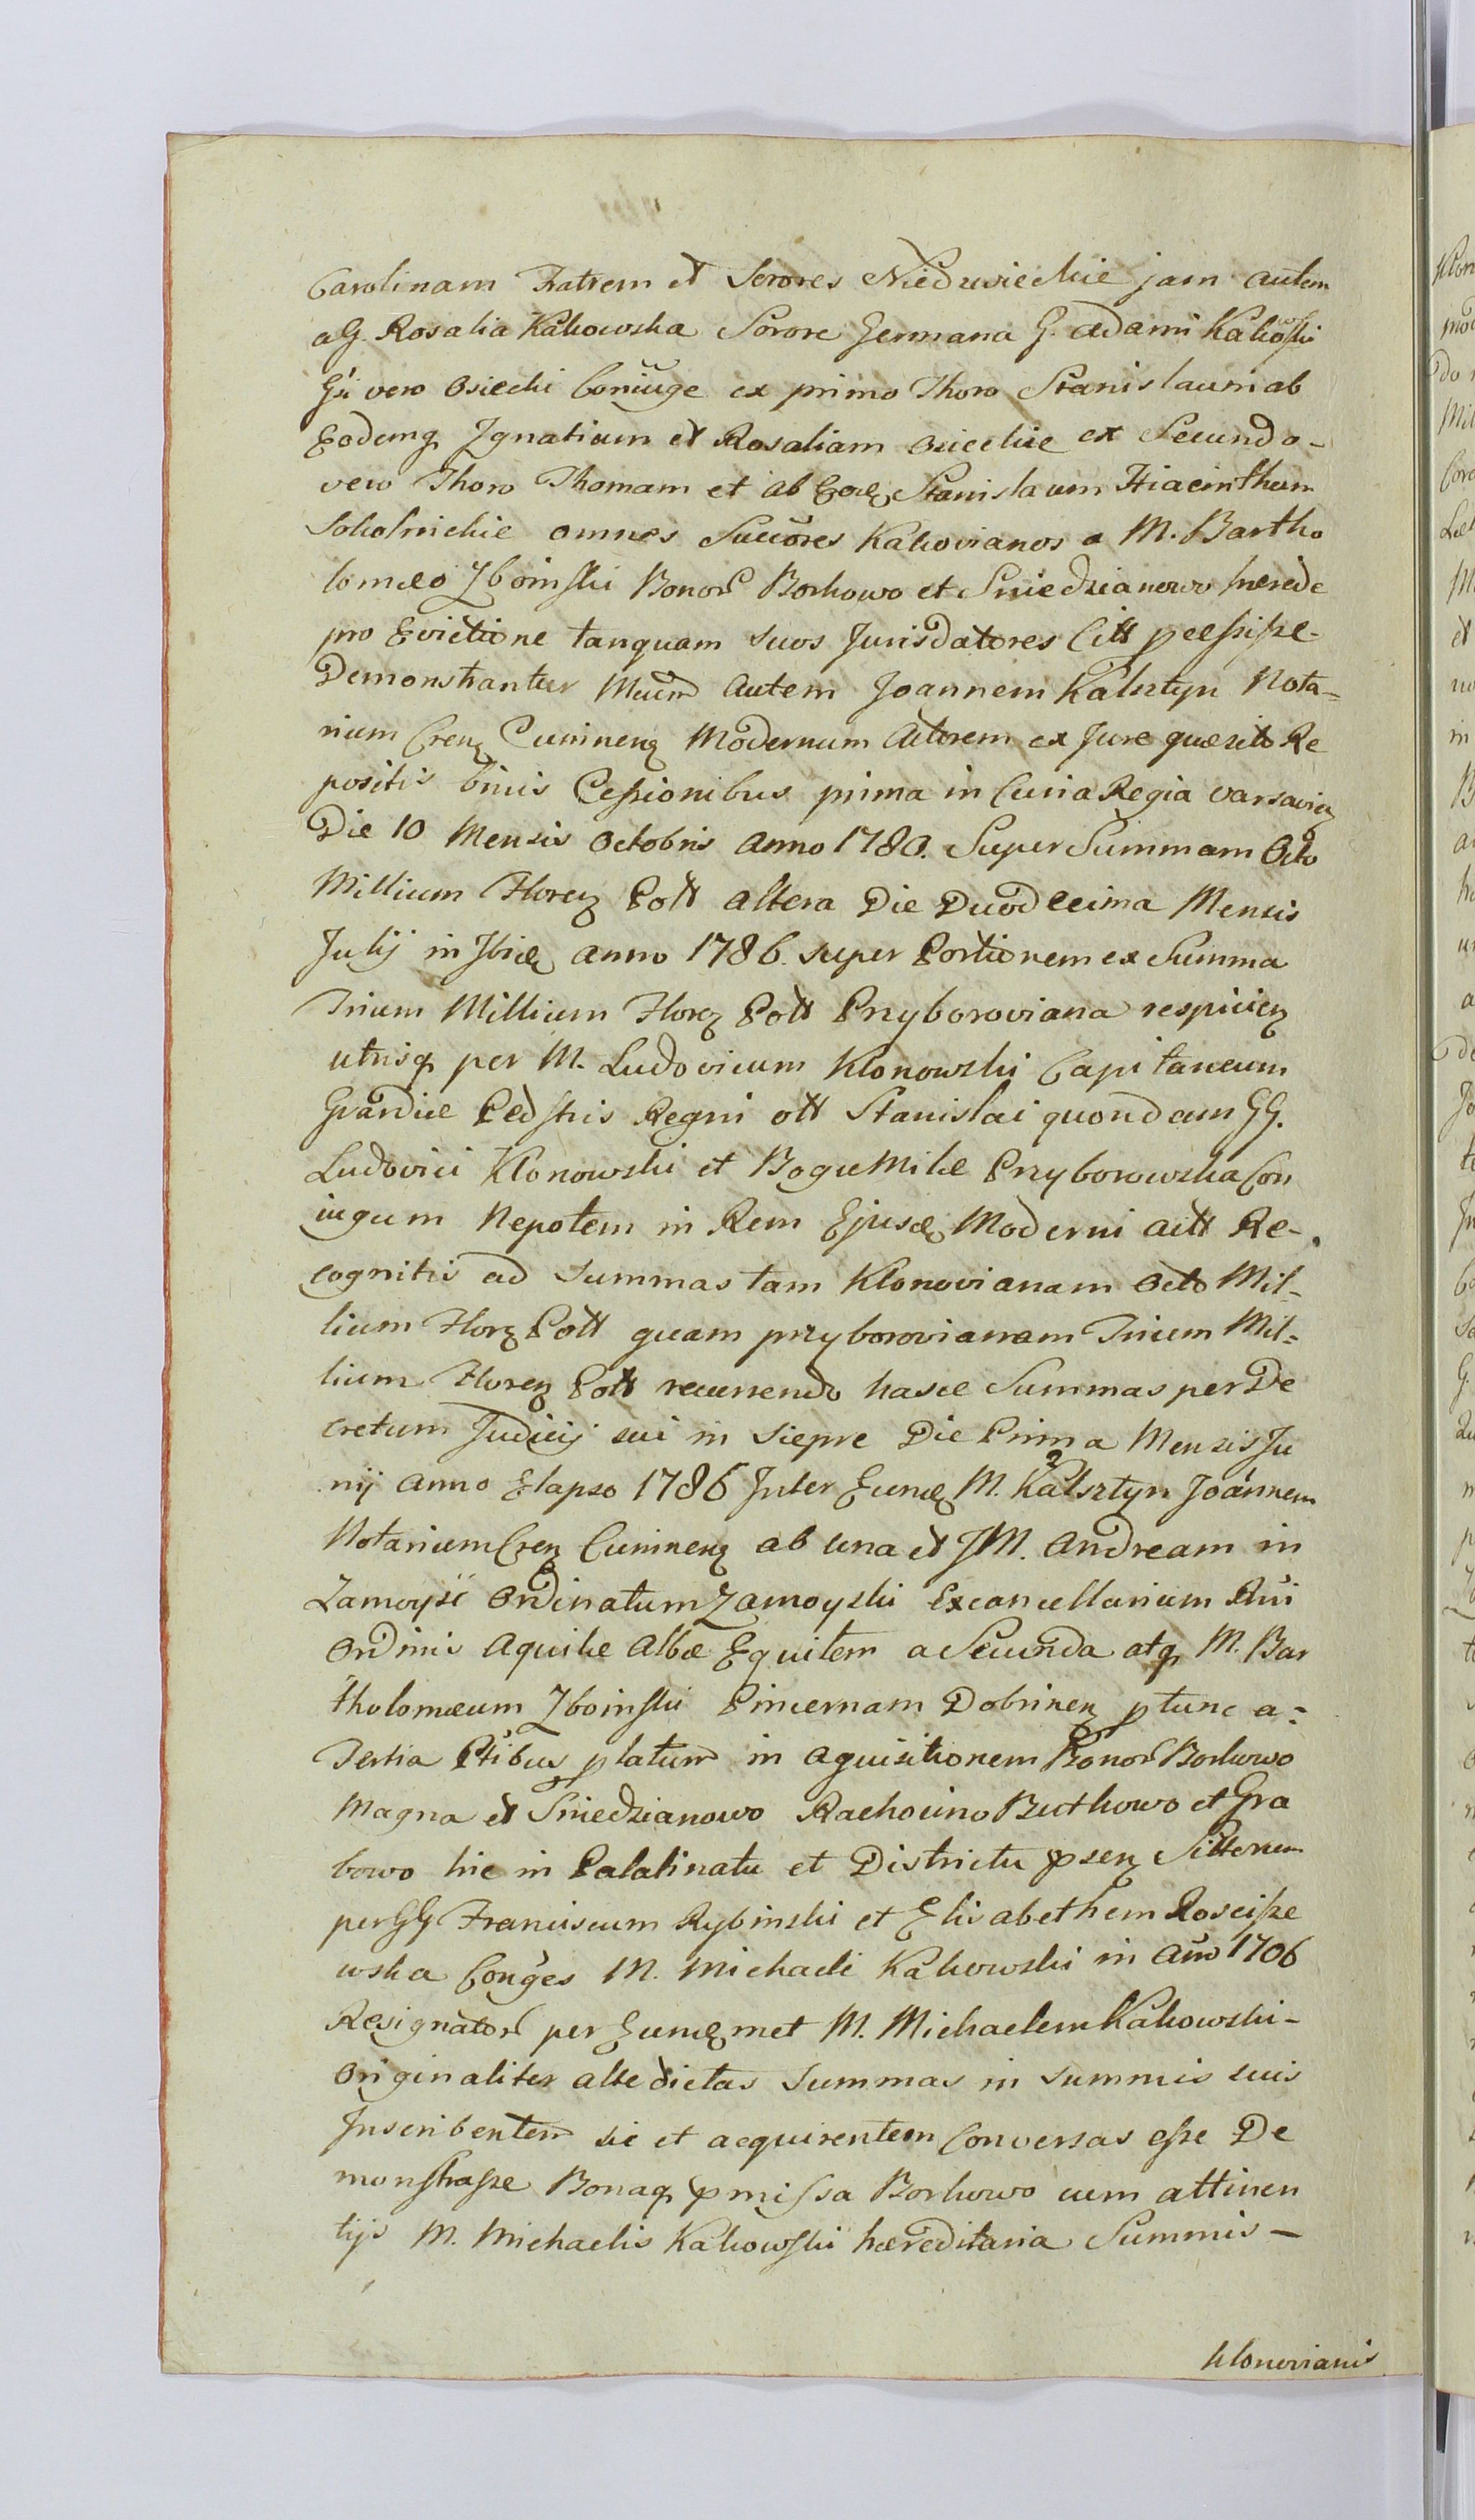 Carolinam Fratrem et Sorores Niedzwieckie jam autem
a G. Rosalia Kakowska Sorore Germana G. Adami Kakowski
Gsi vero Osiecki Coniuge ex primo Thoro Stanislaum ab
Eodemq Ignatium et Rosaliam Osieckie ex Secundo-
vero Thoro Thomam et ab Eoq Stanislaum Hiacinthum
Sokolnickie omnes Succores Kakovianos a M. Bartho
lomæo Zboinski Bonor Borkowo et Sniedzianowo hærede
pro Evictione tanquam suos Jurisdatores Citt
Demonstrantur Mucm autem Joannem Kalsztyn Nota=
rium Crenz Cuinnenz Modernum Actorem ex Jure quæsito Re
positis binis Cessionibus prima in Curia Regia Varsavienz
Die 10 Mensis Octobris Anno 1780. Super Summam Octo
Millium Florenz Poll altera Die Duodecima Mensis
Julij in Ibidq anno 1786. super Portionem ex Summa
Trium Millium Florenz Poll Przyboroviana respicienz
utrisq per M. Ludovicum Klonowski Capitaneum
Gvardiæ Pedstris Regni ott Stanislai quondam GG.
Ludovici Klonowski et Bogumilæ Przyborowska Con
iugum Nepotem in Rem Ejusdq Moderni actt Re-
cognitis ad Summas tam Klonovianam Octo Mil=
lium Florz Poll quam przyborovianam Trium Mil=
lium Florenz Poll recurrendo hasce Summas per De
cretum Judicij sui in Siepre Die Prima Mensis Ju
nij Anno Elapso 1786 Inter Eundq M. Kalsztyn Joannem
Notarium Crenz Cuinnenz ab una et JM. Andream in
Zamoysc Ordinatum Zamoyski Excancellarium Rni
Ordinis Aquilæ Albæ Equitem a Secunda atq M. Bar
tholomæum Zboinski Pincernam Dobrinenz ptunc a=
Tertia Ptibus platum in aquisitionem Bonor Borkowo
Magna et Sniedzianowo Rachocino Rutkowo et Gra
bowo hic in Palatinatu et Districtu psenz Sittorum
per GG Franciscum Rybinski et Elisabethem Rosciſze
wska Conges M. Michaeli Kakowski in Ano 1706
Resignator per Eundqmet M. Michaelem Kakowski-
Originaliter alte dictas Summas in Summis suis
Inscribentem sic et acquirentem Conversas eſse De
monstraſse Bonaq pmiſsa Borkowo cum attinen
tijs M. Michaelis Kakowski hæreditaria Summis-
klonovianis